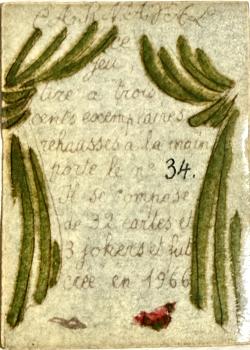 CARNAVAL
ce
jeu
tiré a trois
cents exemplaires
rehaussés a la main
porte le n° 34.
Il se compose
de 32 cartes et
3 jokers et fut
créé en 1966